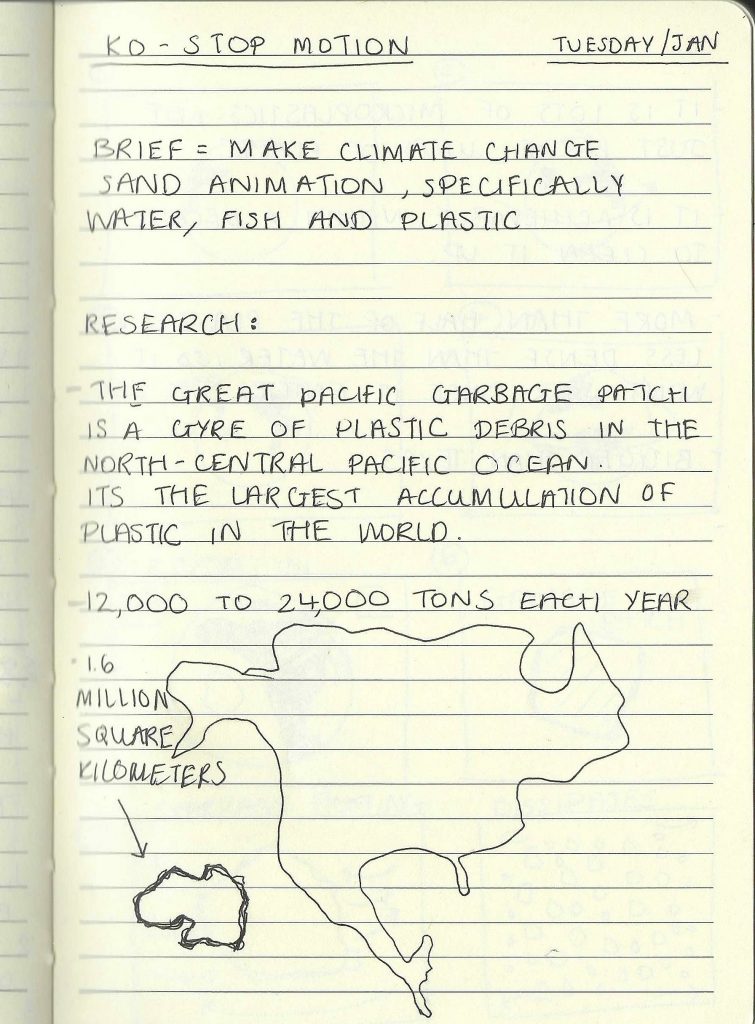 KO - STOP MOTION
TUESDAY/JAN
BRIEF = MAKE CLIMATE CHANGE
SAND ANIMATION, SPECIFICALLY
WATER, FISH AND PLASTIC
RESEARCH:
- THE GREAT PACIFIC GARBAGE PATCH
IS A GYRE OF PLASTIC DEBRIS IN THE
NORTH-CENTRAL PACIFIC OCEAN.
ITS THE LARGEST ACCUMULATION OF
PLASTIC IN THE WORLD.
- 12,000 TO 24,000 TONS EACH YEAR
· 1.6
MILLION
SQUARE
KILOMETERS